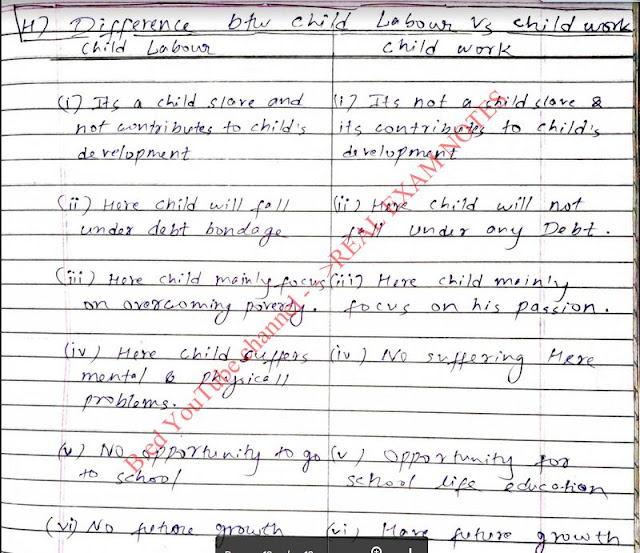 H) Difference btw Child Labour Vs child work
Child Labour
(i) Its a child slave and
not contributes to child's
development
(ii) Here child will fall
under debt bondage
(iii) Here child mainly focus
on overcoming poverty.
(iv) Here child suffers
mental & physicall
problems.
(v) No opportunity to go
to school
(vi) No future growth
Child work
(i) Its not a child slave &
its contributes to child's
development
(ii) Here child will not
fall under any Debt.
(iii) Here child mainly
focus on his passion.
(iv) No suffering Here
(v) Opportunity for
school life education
(vi) Have future growth
B.ed YouTube channel - ->REAL EXAM NOTES